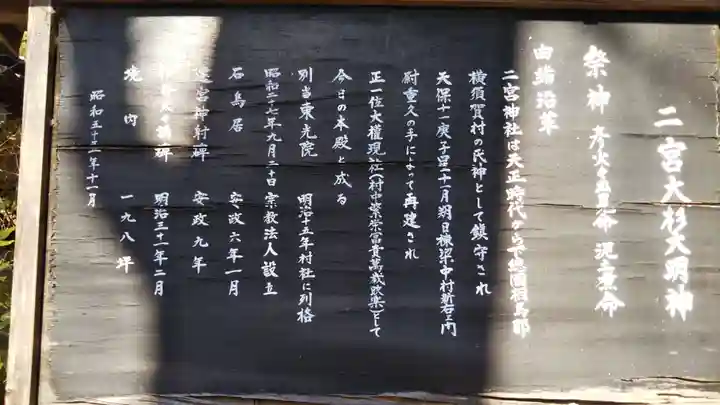 二宮大杉大明神
祭神 彦火々出見命
由緒沿革
二宮神社は天正時代から下総国相馬郡
横須賀村の氏神として鎮守され
天保十一庚子星十一月朔日棟梁中村新右エ門
尉重久の手によって再建され
正一位大権現社(村中繁栄富貴萬歳敬楽)として
今日の本殿と成る
別当東光院 明治五年村社に列格
昭和二十七年九月二十日宗教法人設立
石鳥居 安政六年一月
宮神射碑 安政九年
碑 明治三十一年二月
境内 一九八坪
昭和五十二年十一月